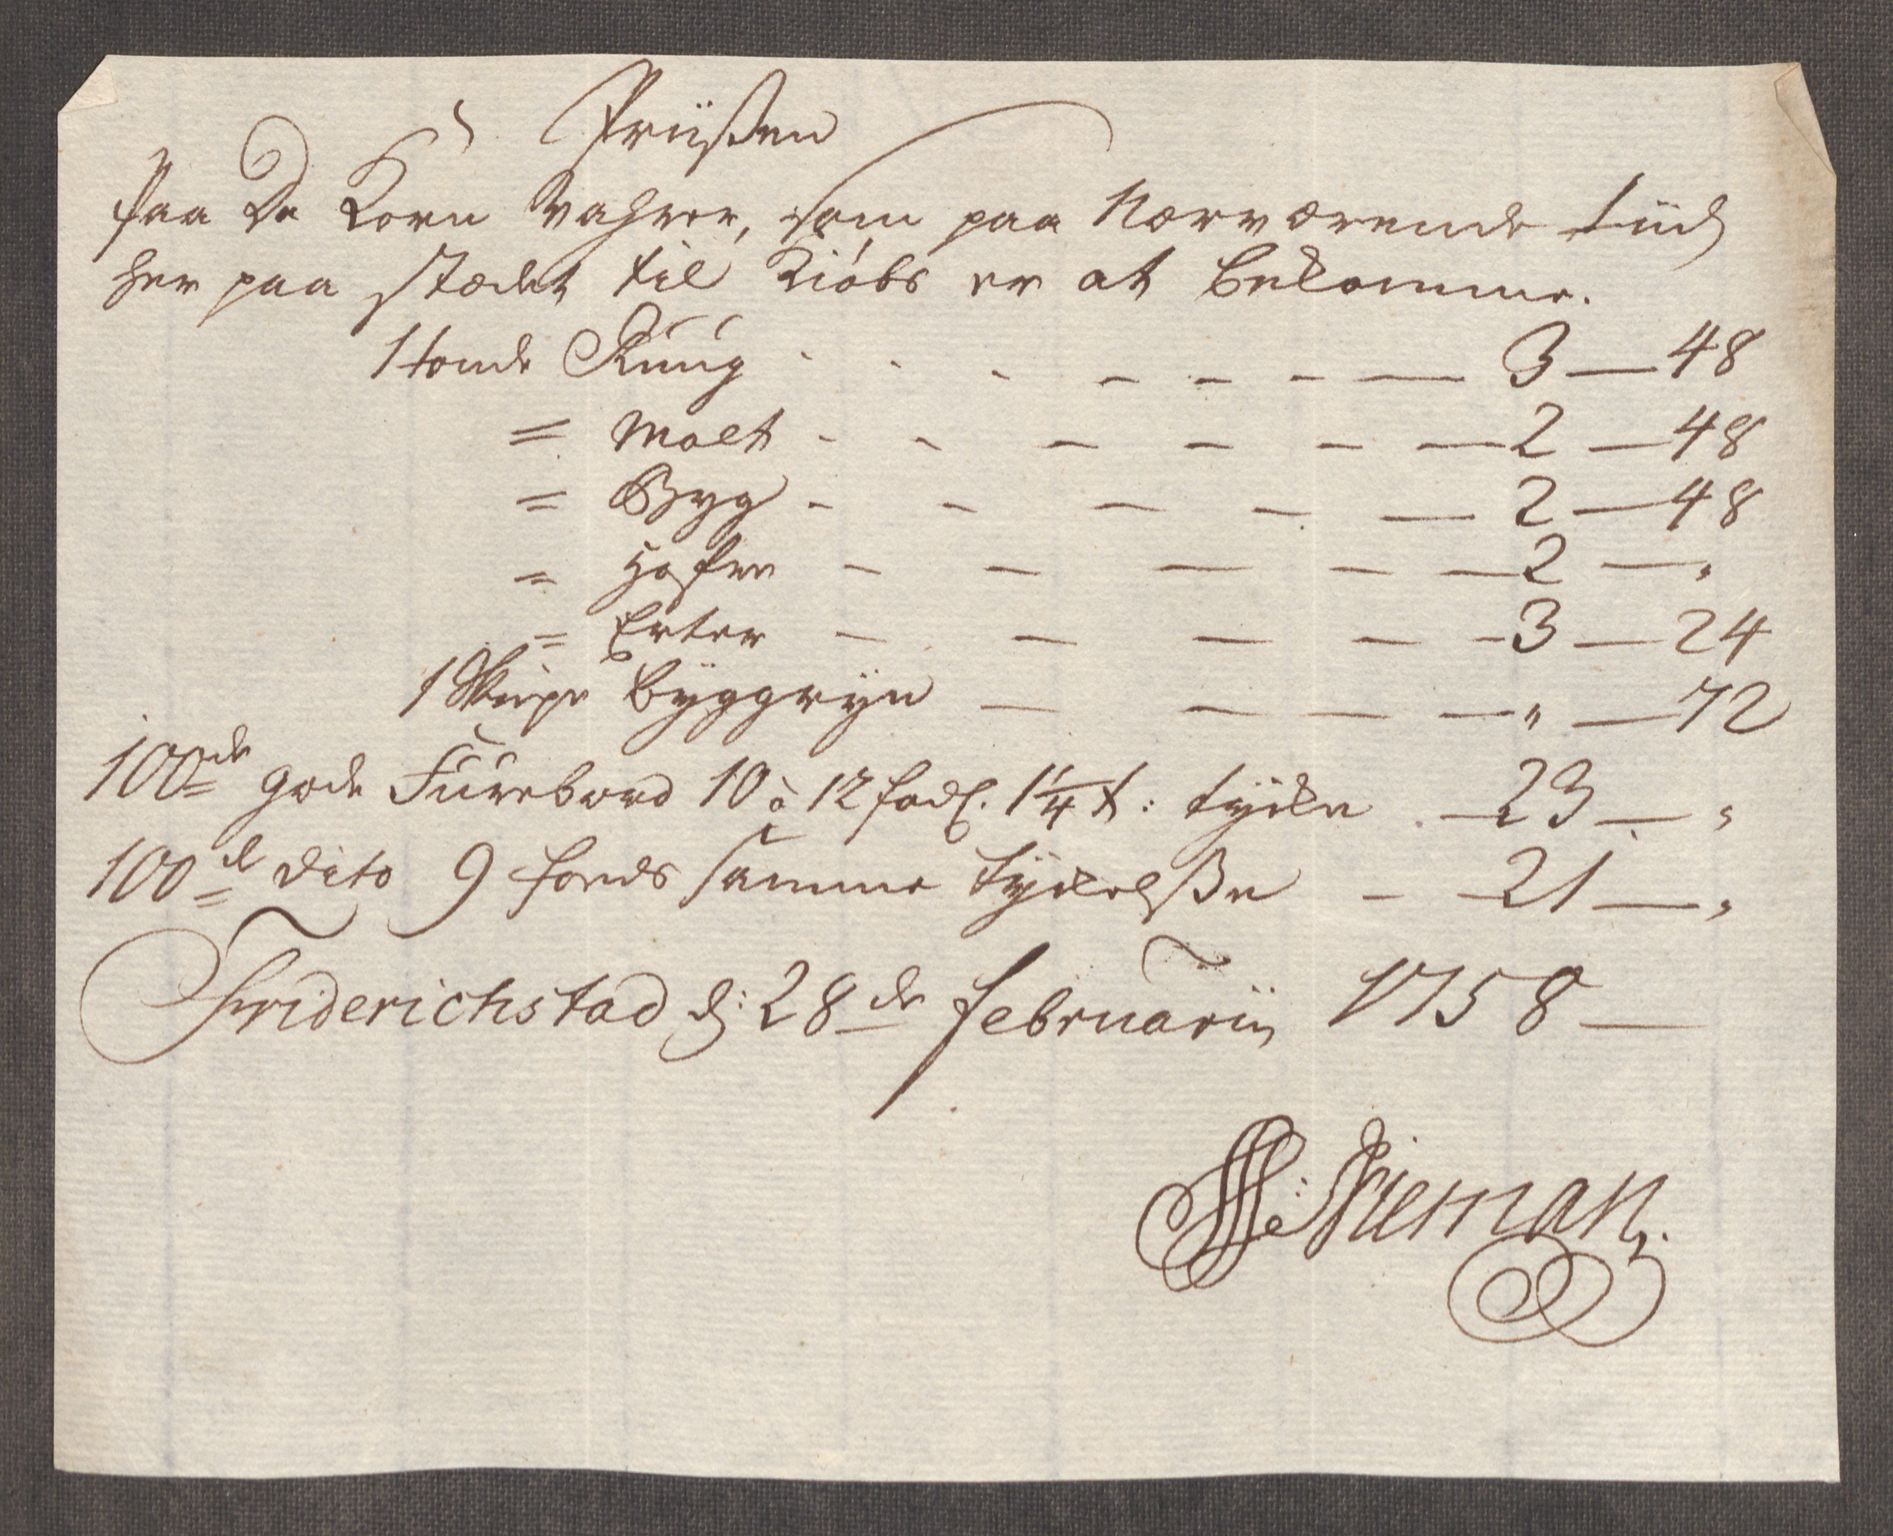 Priißen
Paa De Korn Vahrer, som paa Nærværende tiid
her paa stædet til Kiøbs er at bekomme.
1 tonde Rúúg - - - - - - - 3 — 48
= Malt - - - - - - 2 — 48
= Byg - - - - - 2 — 48
= Hafre - - - - - 2 — "
= Erter - - - - - 3 — 24
1 Skieppe Byggryn - - - - " — 72
100de gode Fúrebord 10 à 12 fods. 1 1/4 t: tyke - 23 — "
100de dito 9 foeds samme tykelße - - 21 — "
Friderichstad d: 28de februarii 1758 —
Nieman